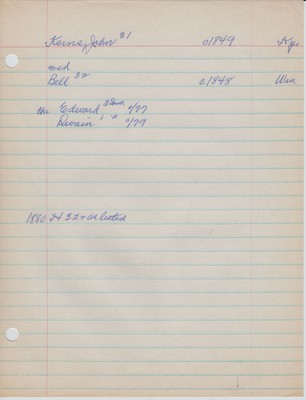 Kerns, John #1 c1849 Kys
med
Bell 32 c1848 Wis
chn Edward 3 c/77
Dwain 1 " c/79
1880 H 32 + as listed